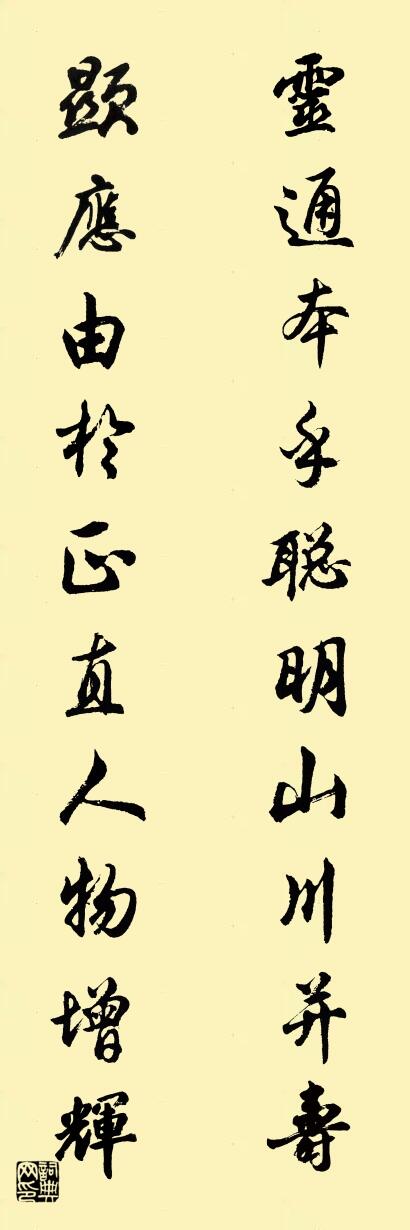 靈通本乎聰明山川并壽
顯應由於正直人物增輝
詞典網印